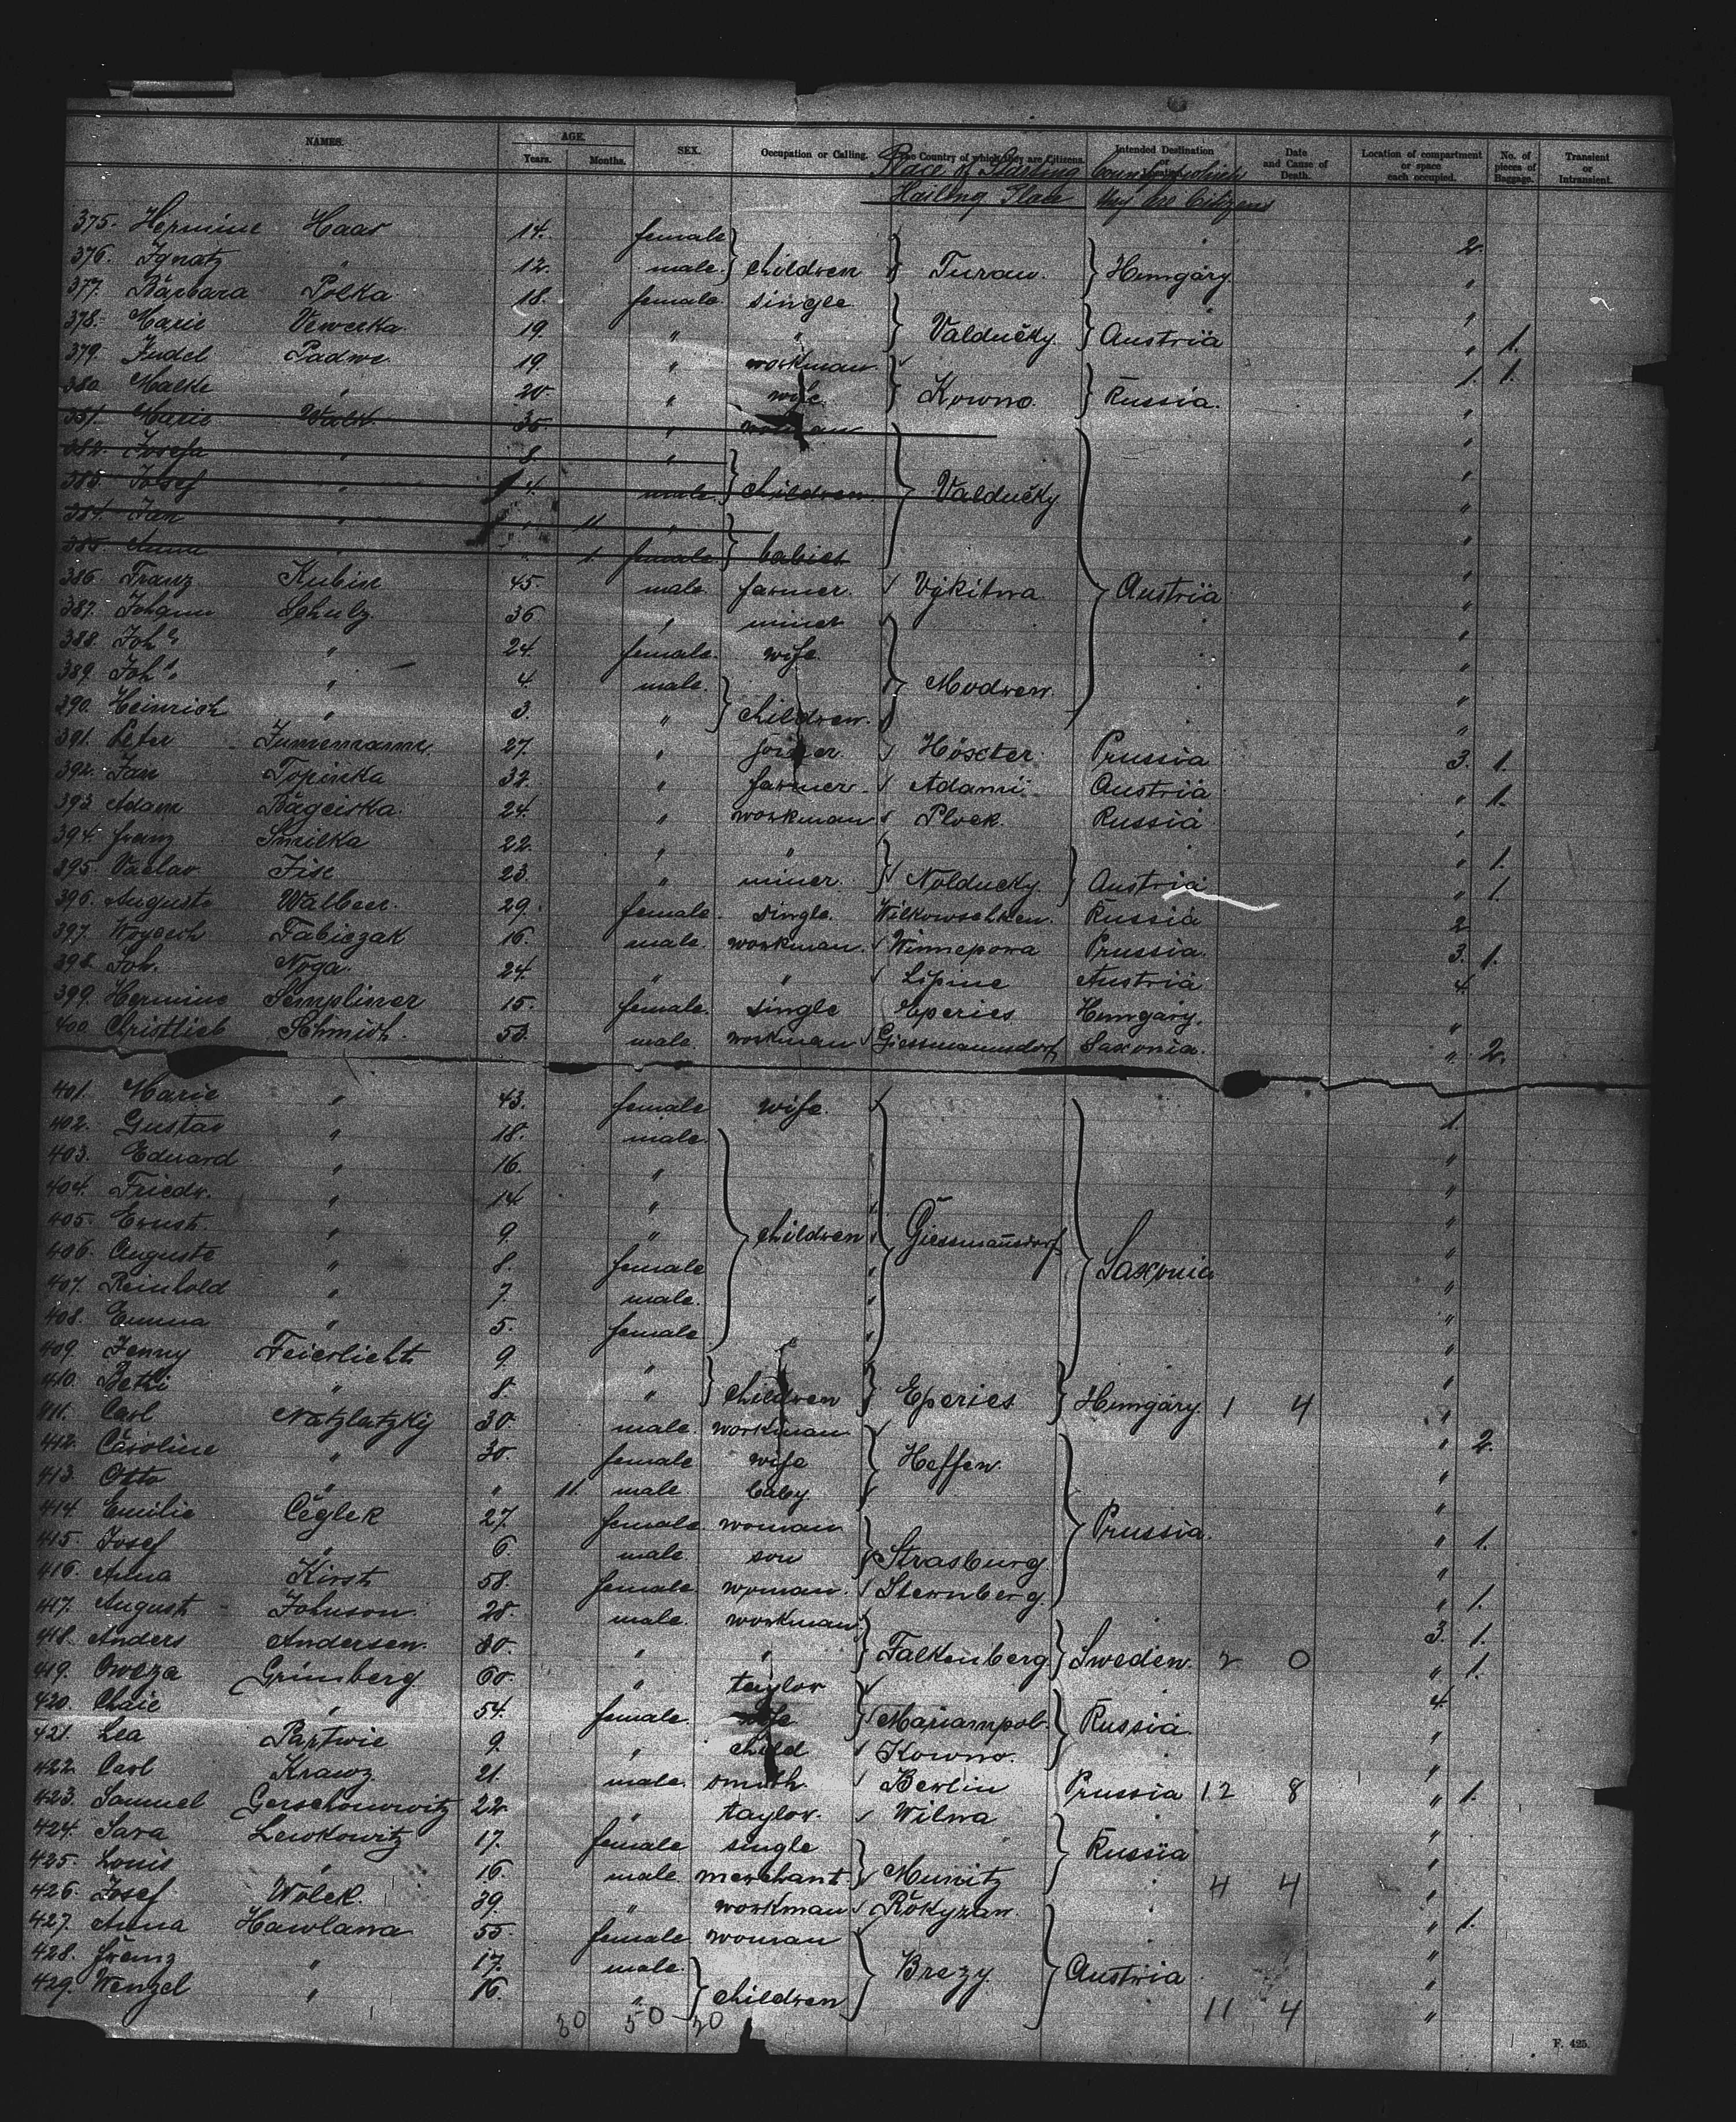 NAMES. AGE. Years. Months. SEX. Occupation or Calling. The Country of which they are Citizens. Intended Destination or Date and Cause of Death. Location of compartment or space each occupied. No. of pieces of Baggage. Transient or Intransient.
Place of Starting Country of which
Hailing Place they are Citizens
375. Hermine Haas 14. female 2.
376. Ignatz " 12. male. children Turau. Hungáry. "
377. Bárbara Polka 18. female. single "
378. Marie Vewerka. 19. " " Valdučky. Austria " 1.
379. Judel Padwe. 19. " workman 1. 1.
380. Malke " 20. " wife. Kowno. Russia. "
381. Marie Walk 35 " woman "
382. Josefa " 8. " "
383. Josef " 4. male. children Valdučky "
384. Jan " " 11. " "
385. Anna " " 1. female. babies "
386. Franz Kubin 45. male. farmer. Vykitna Austria "
387. Johann Schulz 36 " miner "
388. Joh " 24. female. wife. "
389. Joh " 4. male. Modrew "
390. Heinrich " 3. " children. "
391. Peter Junnemann 27. " joiner. Höxter Prussia 3. 1.
392. Jan Topinka 32. " farmer. Adami Austria " 1.
393. Adam Bágciska. 24. " workman Plock. Russia "
394. Franz Smilka 22. " " " 1.
395. Vaclav Fise 23. " miner. Nolducky. Austria " 1.
396. Auguste Walbeer. 29. female. single. Wilkowschken. Russia 2.
397. Woycech Fabiczak 16. male. workman. Winnepowa Prussia. 3. 1.
398. Joh. Noga. 24. " " Lipine Austria 4.
399. Hermine Sempliner 15. female. single Eperies Hungáry. "
400. Christlieb Schmidt. 53. male. workman Giessmannsdorf Saxonia. " 2.
401. Marie " 43. female wife. 1.
402. Gustav " 18. male. "
403. Eduard " 16. " "
404. Friedr. " 14. " "
405. Ernst " 9. " children Giessmansdorf "
406. Auguste " 8. female Saxonia "
407. Reinhold " 7. male. "
408. Emma " 5. female "
409. Jenny Feierlicht 9. " "
410. Betti " 8. " children Eperies Hungáry. 1 4 "
411. Carl Natzlatzky 30. male. workman " 2.
412. Caroline " 30. female wife Heffen. "
413. Otto " " 11. male. baby. "
414. Emilie Ceglek 27. female. woman Prussia. " 1.
415. Josef " 6. male. son Strasburg. "
416. Anna Kirst 58. female. woman. Sternberg. " 1.
417. August Johnson 28. male. workman. 3. 1.
418. Anders Andersen. 30. " " Falkenberg. Sweden. 2 0 " 1.
419. Oweza Grünberg 60. " taylor 4.
420. Chaie " 54. female. wife Mariampol. Russia "
421. Lea Partwie 9. " child Kowno. "
422. Carl Kranz. 21. male. smith. Berlin Prussia 12 8 " 1.
423. Samuel Gerschonowitz 22. " taylor. Wilna "
424. Sara Lewkowitz 17. female single Russia "
425. Louis " 16. male merchant. Munitz 4 4 "
426. Josef Wolek. 39. " workman Rokyzan. " 1.
427. Anna Hawlana 55. female. woman "
428. Franz " 17. male. Brezy. Austria "
429. Wenzel " 16. " children 11 4 "
30 50 30
F. 425.